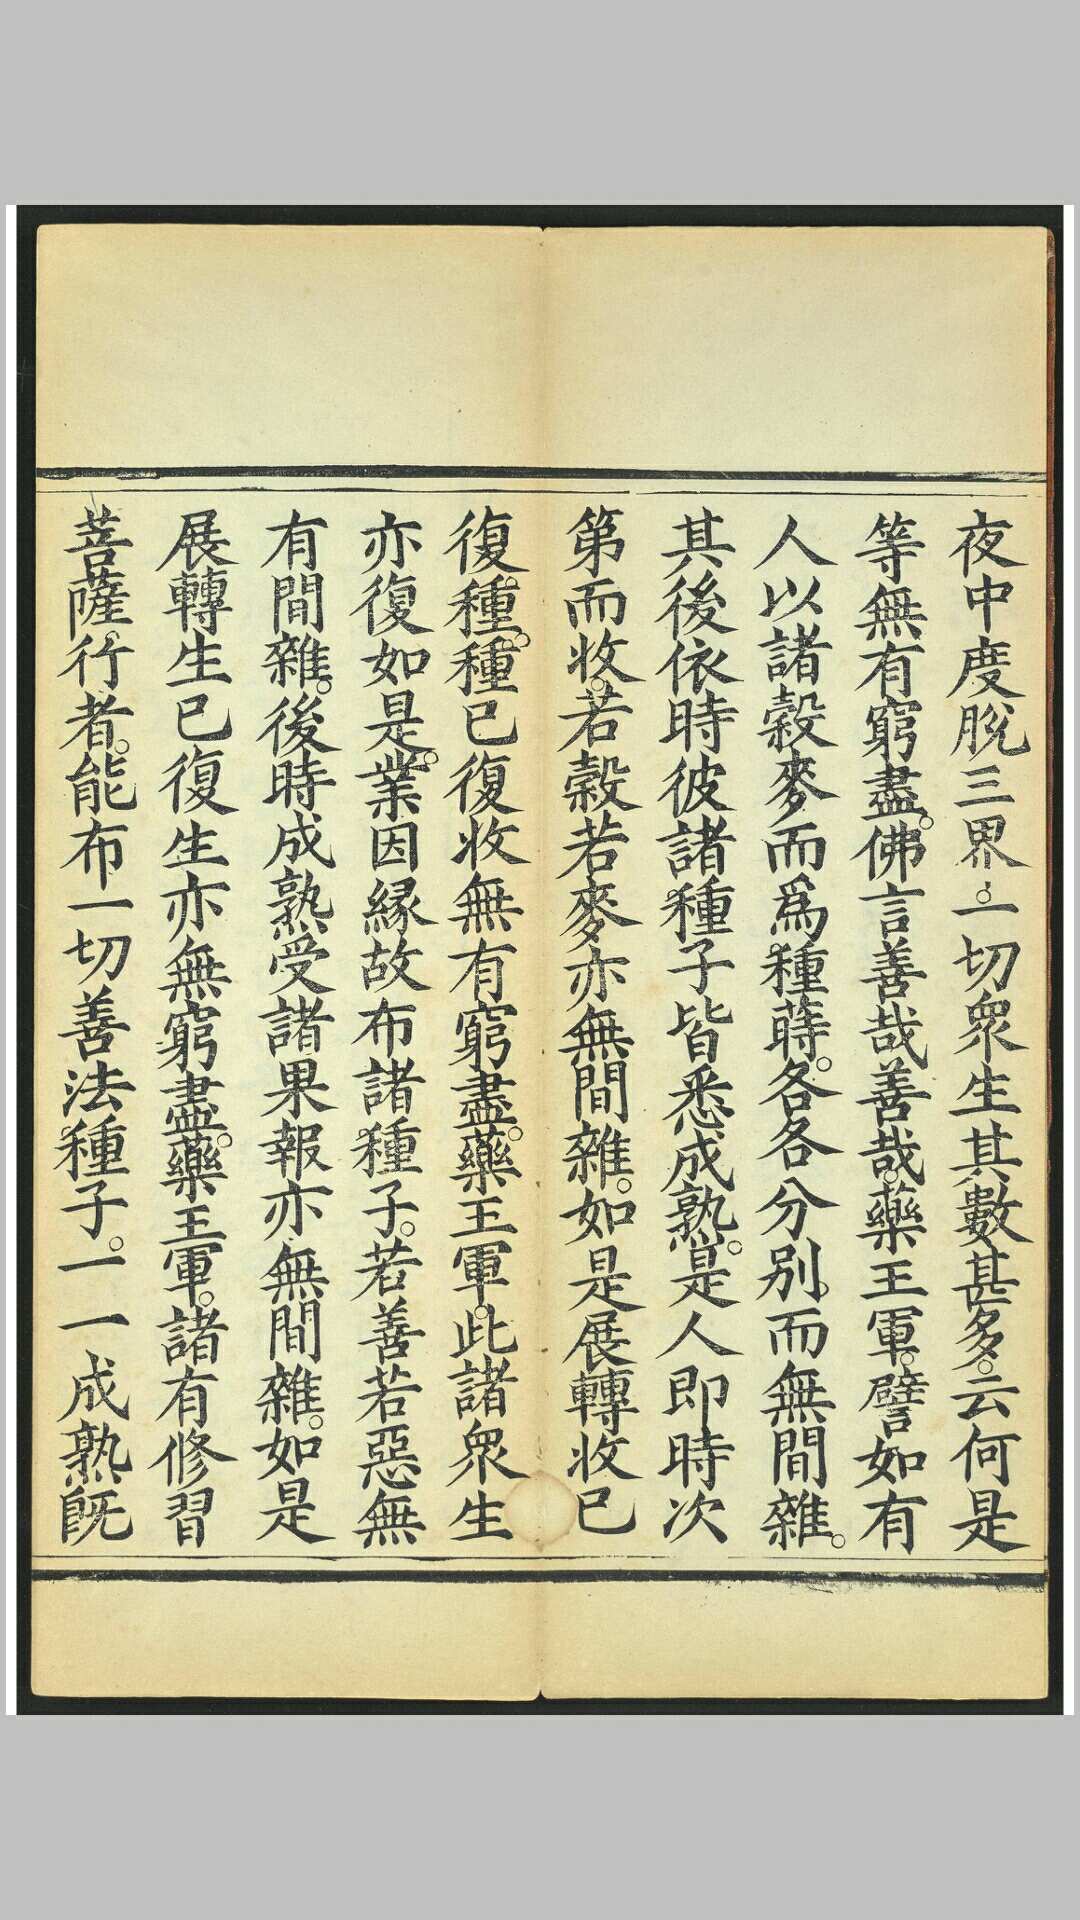 夜中度脫三界。一切衆生其數甚多。云何是
等無有窮盡。佛言善哉善哉。藥王軍。譬如有
人以諸穀麥而爲種蒔。各各分別。而無間雜。
其後依時彼諸種子皆悉成熟。是人即時次
第而收。若穀若麥亦無間雜。如是展轉收已
復種。種已復收無有窮盡。藥王軍。此諸衆生
亦復如是。業因緣故布諸種子。若善若惡無
有間雜。後時成熟受諸果報亦無間雜。如是
展轉生已復生亦無窮盡。藥王軍。諸有修習
菩薩行者。能布一切善法種子。一一成熟旣